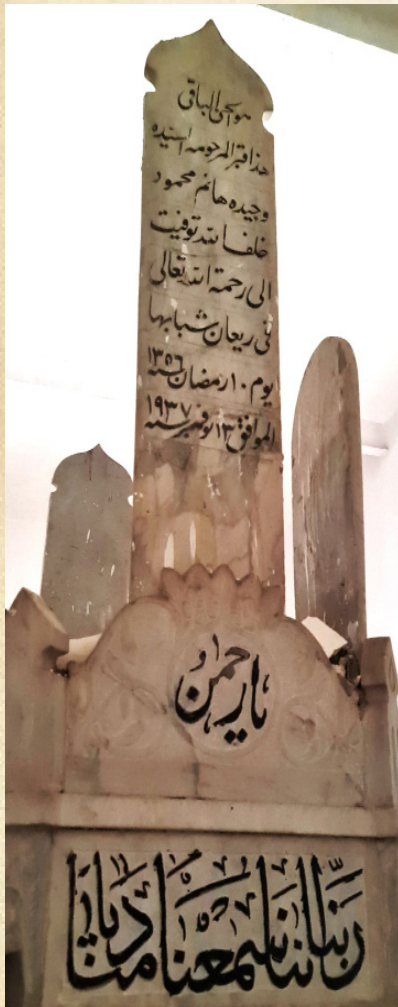 هو الحي الباقي
هذا قبر المرحومه السيده
وجيده هانم محمود
خلف الله توفيت
الى رحمة الله تعالى
في ريعان شبابها
يوم ١٠ رمضان سنة ١٣٥٦
الموافق ١٣ نوفمبر سنة ١٩٣٧
يا رحمن
ربنا إننا سمعنا مناديا